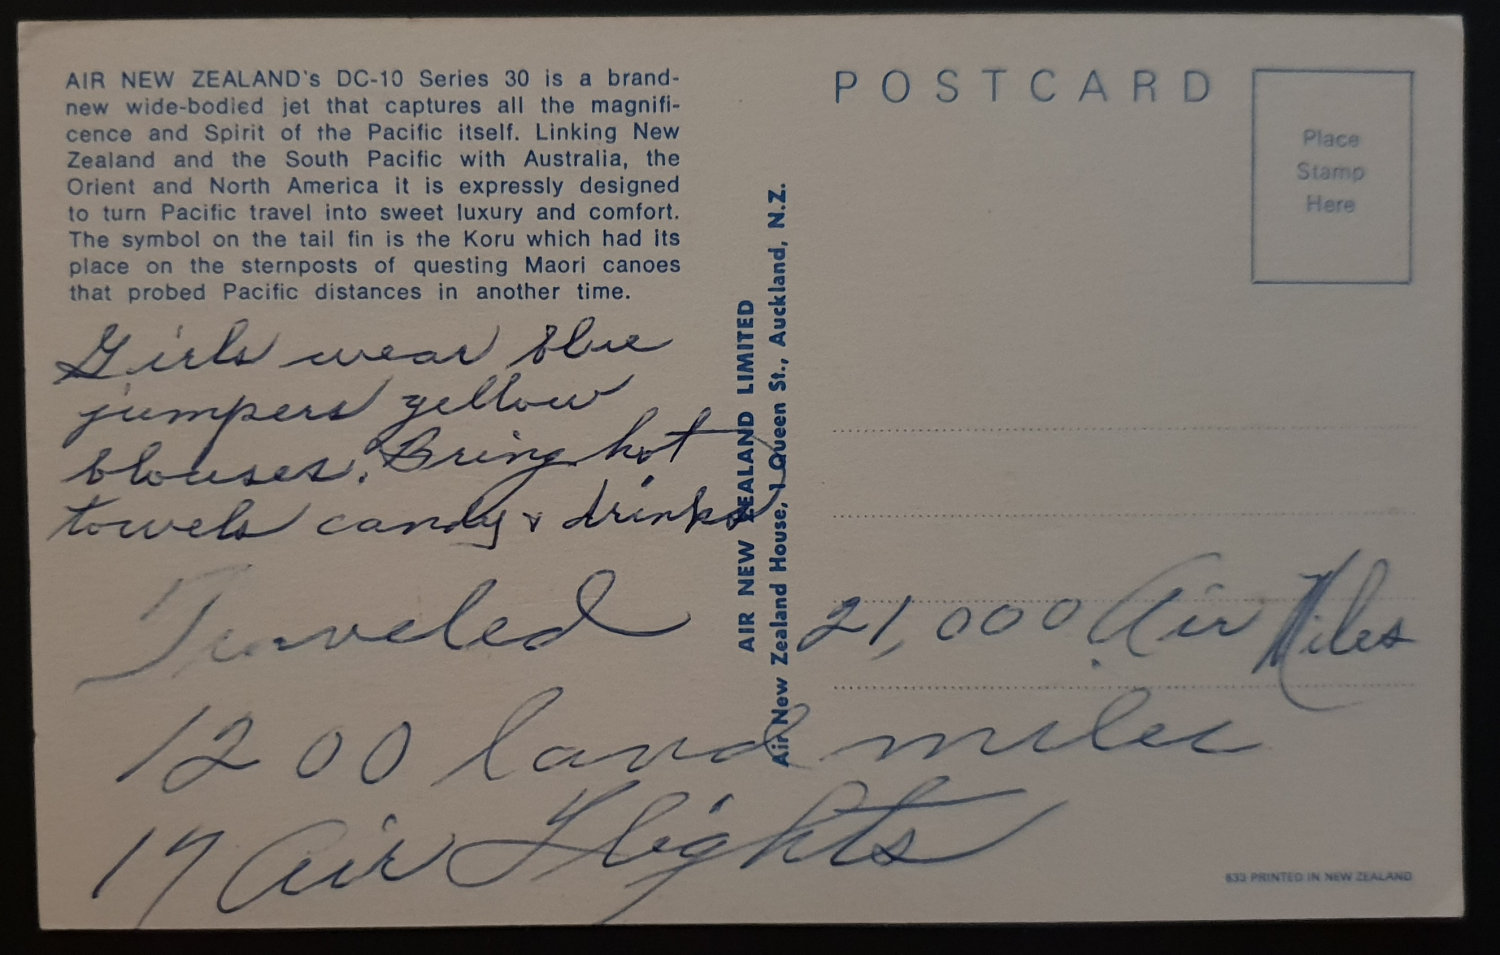 AIR NEW ZEALAND's DC-10 Series 30 is a brand-
new wide-bodied jet that captures all the magnifi-
cence and Spirit of the Pacific itself. Linking New
Zealand and the South Pacific with Australia, the
Orient and North America it is expressly designed
to turn Pacific travel into sweet luxury and comfort.
The symbol on the tail fin is the Koru which had its
place on the sternposts of questing Maori canoes
that probed Pacific distances in another time.
Girls wear blue
jumpers yellow
blouses. Bring hot
towels candy & drinks
AIR NEW ZEALAND LIMITED
Air New Zealand House, 1 Queen St., Auckland, N.Z.
POSTCARD
Place
Stamp
Here
Traveled 21,000 Air Miles
1200 land miles
17 Air Flights
633 PRINTED IN NEW ZEALAND